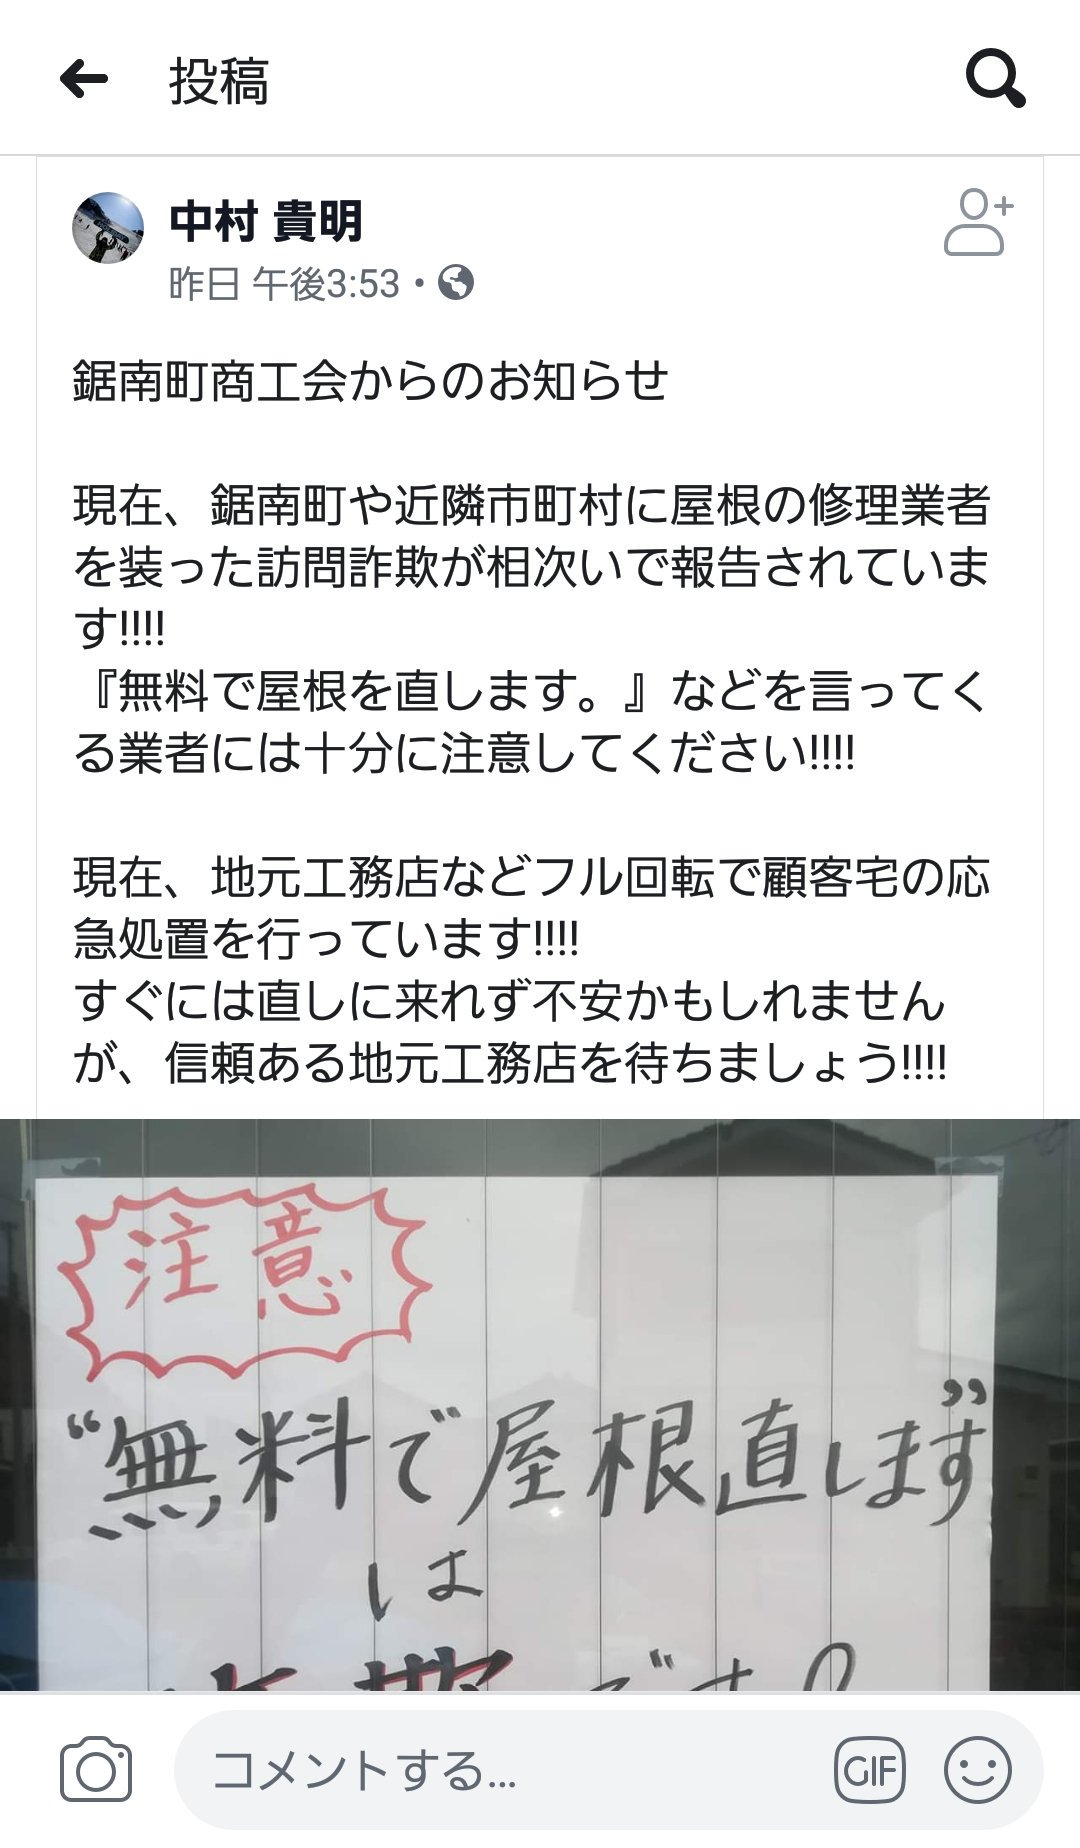 投稿
中村 貴明
昨日 午後3:53
鋸南町商工会からのお知らせ
現在、鋸南町や近隣市町村に屋根の修理業者
を装った訪問詐欺が相次いで報告されていま
す!!!!
『無料で屋根を直します。』などを言ってく
る業者には十分に注意してください!!!!
現在、地元工務店などフル回転で顧客宅の応
急処置を行っています!!!!
すぐには直しに来れず不安かもしれません
が、信頼ある地元工務店を待ちましょう!!!!
注意
“無料で屋根直します”
は
コメントする...
GIF